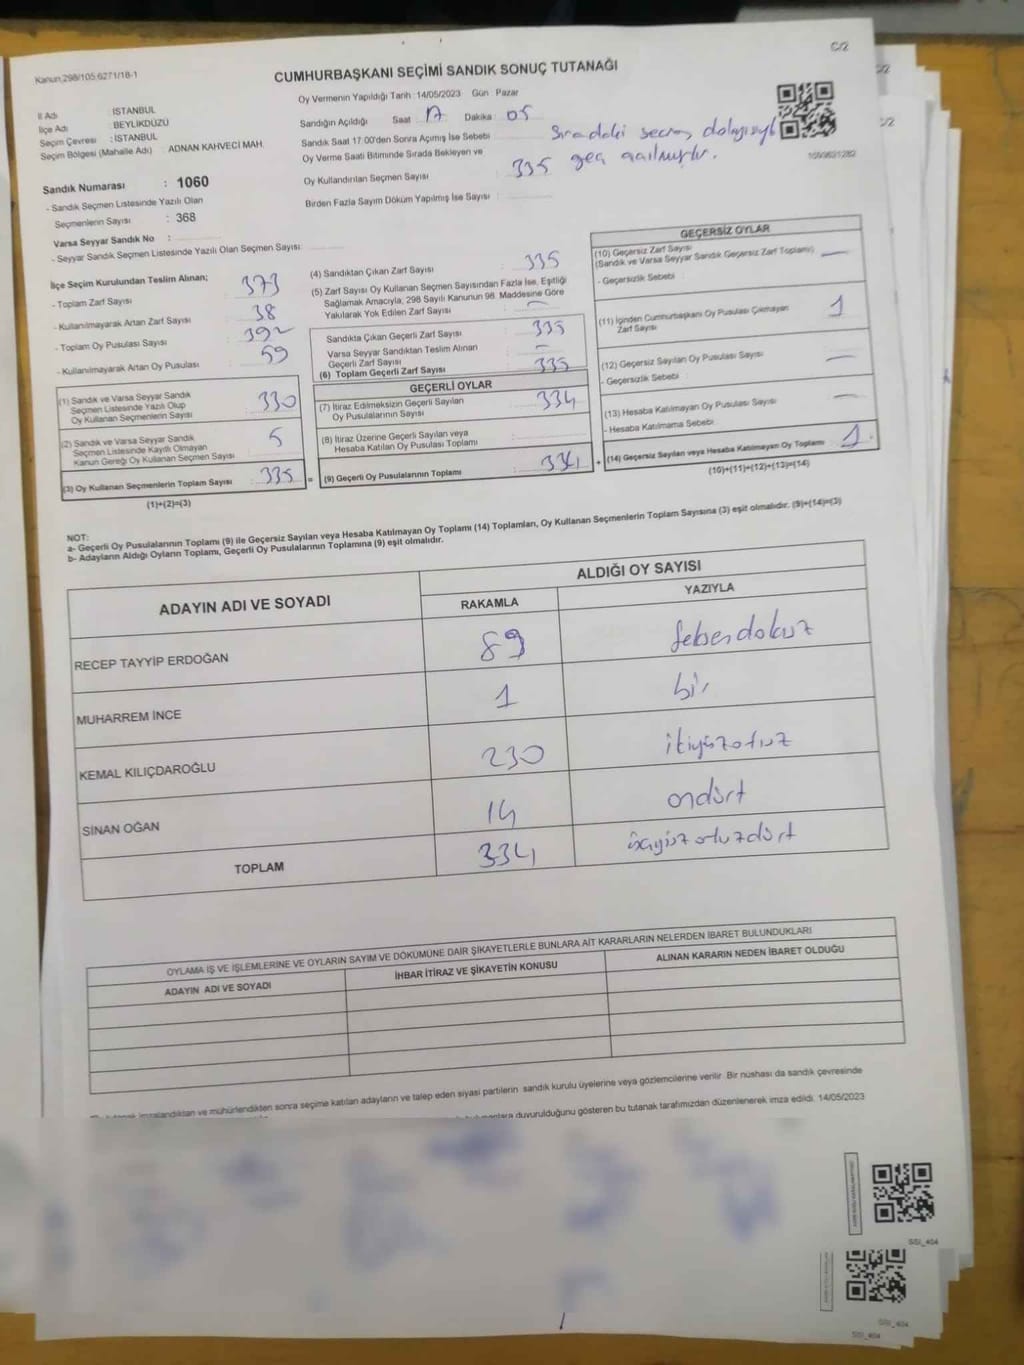 C/2
Kanun:298/105,6271/18-1
CUMHURBAŞKANI SEÇİMİ SANDIK SONUÇ TUTANAĞI
İl Adı : İSTANBUL
İlçe Adı : BEYLİKDÜZÜ
Seçim Çevresi : İSTANBUL
Seçim Bölgesi (Mahalle Adı) : ADNAN KAHVECİ MAH.
Sandık Numarası : 1060
- Sandık Seçmen Listesinde Yazılı Olan
Seçmenlerin Sayısı : 368
Varsa Seyyar Sandık No :
- Seyyar Sandık Seçmen Listesinde Yazılı Olan Seçmen Sayısı:
Oy Vermenin Yapıldığı Tarih :14/05/2023 Gün : Pazar
Sandığın Açıldığı Saat 17 Dakika 05
Sandık Saat 17:00'den Sonra Açımış İse Sebebi : Sıradaki seçmen dolayısıyla
geç açılmıştır.
Oy Verme Saati Bitiminde Sırada Bekleyen ve
Oy Kullandırılan Seçmen Sayısı : 335
Birden Fazla Sayım Döküm Yapılmış İse Sayısı :
İlçe Seçim Kurulundan Teslim Alınan;
- Toplam Zarf Sayısı : 373
- Kullanılmayarak Artan Zarf Sayısı : 38
- Toplam Oy Pusulası Sayısı : 392
- Kullanılmayarak Artan Oy Pusulası : 59
(1) Sandık ve Varsa Seyyar Sandık
Seçmen Listesinde Yazılı Olup
Oy Kullanan Seçmenlerin Sayısı : 330
(2) Sandık ve Varsa Seyyar Sandık
Seçmen Listesinde Kayıtlı Olmayan
Kanun Gereği Oy Kullanan Seçmen Sayısı : 5
(3) Oy Kullanan Seçmenlerin Toplam Sayısı : 335
(1)+(2)=(3)
(4) Sandıktan Çıkan Zarf Sayısı : 335
(5) Zarf Sayısı Oy Kullanan Seçmen Sayısından Fazla İse, Eşitliği
Sağlamak Amacıyla, 298 Sayılı Kanunun 98. Maddesine Göre
Yakılarak Yok Edilen Zarf Sayısı : –
Sandıkta Çıkan Geçerli Zarf Sayısı : 335
Varsa Seyyar Sandıktan Teslim Alınan
Geçerli Zarf Sayısı : –
(6) Toplam Geçerli Zarf Sayısı : 335
GEÇERLİ OYLAR
(7) İtiraz Edilmeksizin Geçerli Sayılan
Oy Pusulalarının Sayısı : 334
(8) İtiraz Üzerine Geçerli Sayılan veya
Hesaba Katılan Oy Pusulası Toplamı :
= (9) Geçerli Oy Pusulalarının Toplamı : 334
GEÇERSİZ OYLAR
(10) Geçersiz Zarf Sayısı
(Sandık ve Varsa Seyyar Sandık Geçersiz Zarf Toplamı) : –
- Geçersizlik Sebebi :
(11) İçinden Cumhurbaşkanı Oy Pusulası Çıkmayan
Zarf Sayısı : 1
(12) Geçersiz Sayılan Oy Pusulası Sayısı : –
- Geçersizlik Sebebi :
(13) Hesaba Katılmayan Oy Pusulası Sayısı : –
- Hesaba Katılmama Sebebi:
+ (14) Geçersiz Sayılan veya Hesaba Katılmayan Oy Toplamı : 1
(10)+(11)+(12)+(13)=(14)
NOT:
a- Geçerli Oy Pusulalarının Toplamı (9) ile Geçersiz Sayılan veya Hesaba Katılmayan Oy Toplamı (14) Toplamları, Oy Kullanan Seçmenlerin Toplam Sayısına (3) eşit olmalıdır. (9)+(14)=(3)
b- Adayların Aldığı Oyların Toplamı, Geçerli Oy Pusulalarının Toplamına (9) eşit olmalıdır.
ADAYIN ADI VE SOYADI
ALDIĞI OY SAYISI
RAKAMLA YAZIYLA
RECEP TAYYİP ERDOĞAN 89 seksendokuz
MUHARREM İNCE 1 bir
KEMAL KILIÇDAROĞLU 230 ikiyüzotuz
SİNAN OĞAN 14 ondört
TOPLAM 334 üçyüz otuzdört
OYLAMA İŞ VE İŞLEMLERİNE VE OYLARIN SAYIM VE DÖKÜMÜNE DAİR ŞİKAYETLERLE BUNLARA AİT KARARLARIN NELERDEN İBARET BULUNDUKLARI
ADAYIN ADI VE SOYADI İHBAR İTİRAZ VE ŞİKAYETİN KONUSU ALINAN KARARIN NEDEN İBARET OLDUĞU
tutanak imzalandıktan ve mühürlendikten sonra seçime katılan adayların ve talep eden siyasi partilerin sandık kurulu üyelerine veya gözlemcilerine verilir. Bir nüshası da sandık çevresinde
duyurulduğunu gösteren bu tutanak tarafımızdan düzenlenerek imza edildi. 14/05/2023
SSI_404
SSI_404
SSI_404